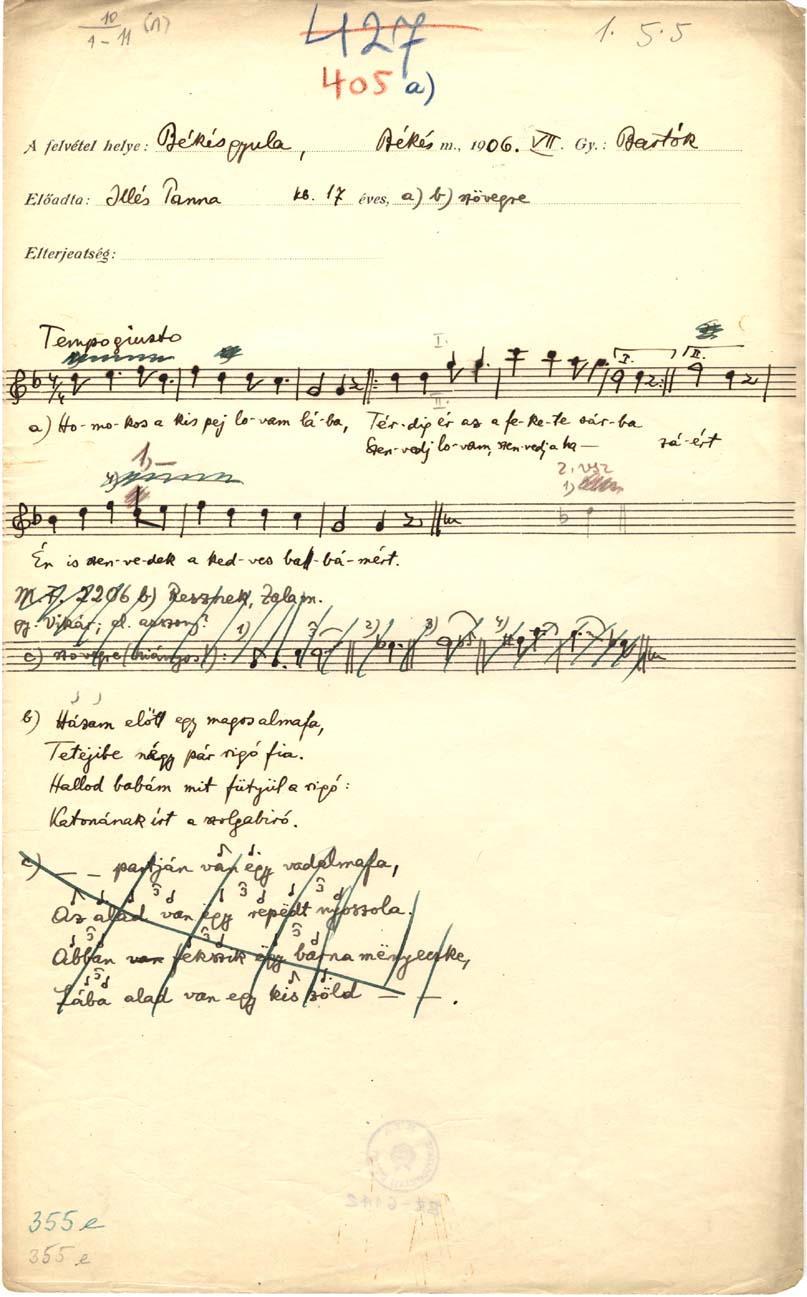 10
9-11 (11)
1. 5.5
427
405 a)
A felvétel helye: Békésgyula, Békés m., 1906. VII. Gy.: Bartók
Előadta: Illés Panna kb. 17 éves, a) b) szövegre
Elterjedtség:
Tempo giusto
I.
I. II.
II.
a) Ho-mo-kos a kis pej lo-vam lá-ba, Tér-dig ér az a fe-ke-te sár-ba
Szen-vedj lo-vam, szen-vedj a ha— zá-ért
1) —
2. vsz
1)
Én is szen-ve-dek a ked-ves ba-bá-mért.
M.F. 2206 b) Resznek, Zala m.
gy. Vikár; el. asszony?
1) 2) 3) 4)
c) szövegre (hiányos):
b) Házam előtt egy magos almafa,
Tetejibe négy pár rigó fia.
Hallod babám mit fütyül a rigó:
Katonának írt a szolgabiró.
c) — — partján van egy vadalmafa,
Az alad van egy repëdt nyoszola.
Abban van fekszik ëgy barna mënyecske,
Lába alad van egy kis zöld — — .
355 e
355 e